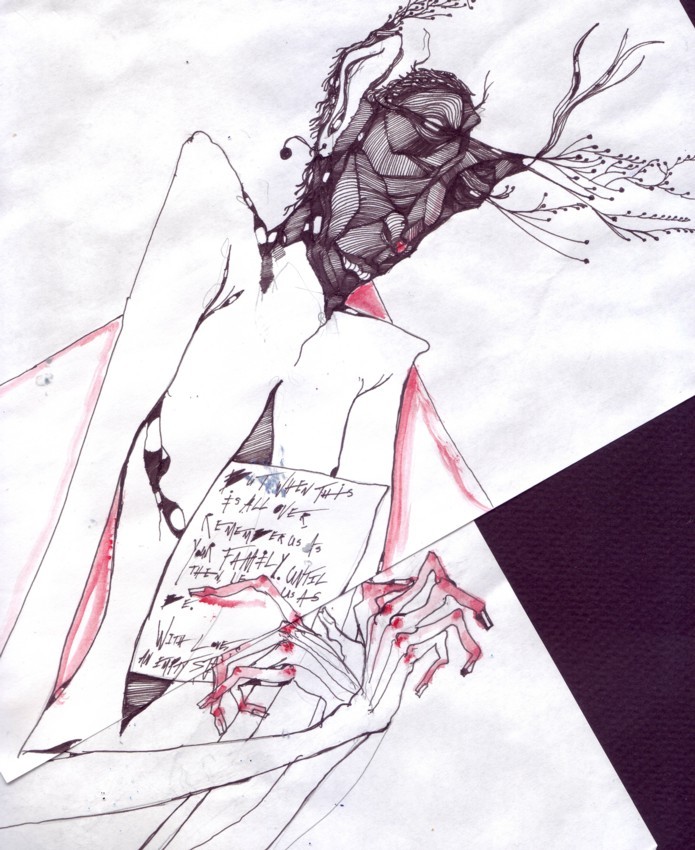 WHEN THIS
IS ALL OVER
REMEMBER US AS
YOUR FAMILY. UNTIL
THEN LE US AS
E.
WITH LOVE
AN EMPTY S